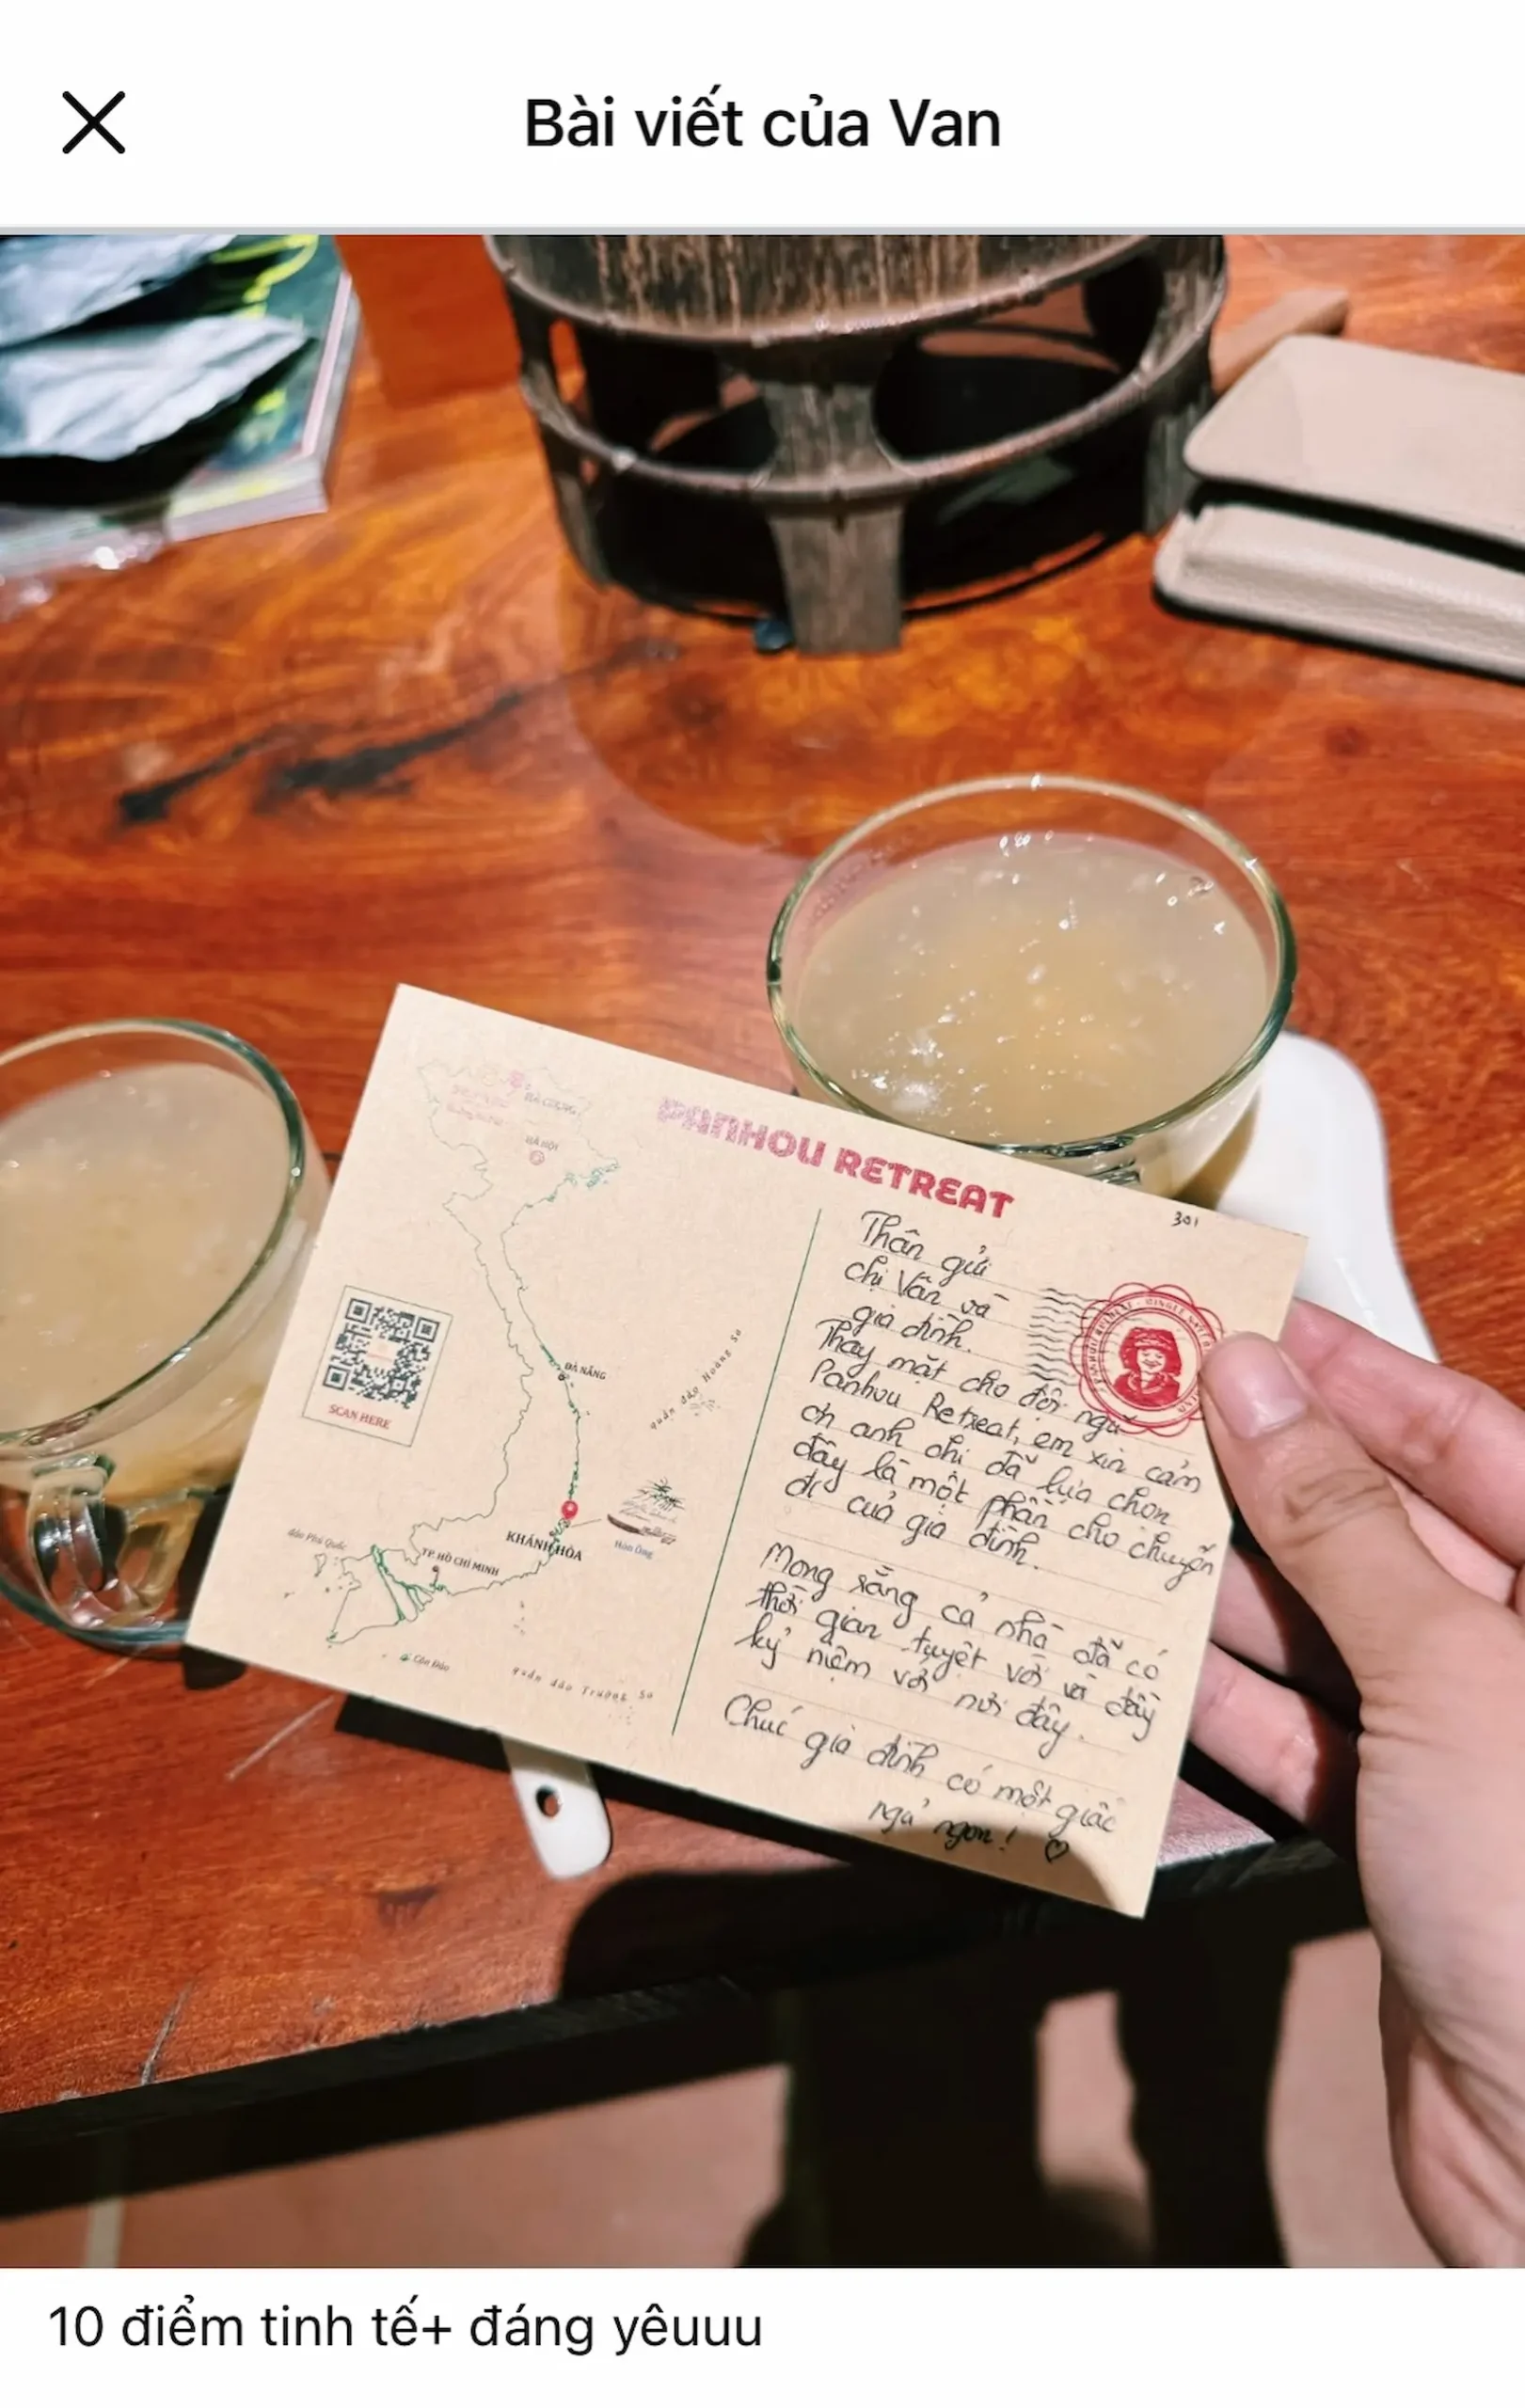 Bài viết của Van
PANHOU RETREAT
301
HÀ GIANG
HÀ NỘI
ĐÀ NẴNG
quần đảo Hoàng Sa
SCAN HERE
KHÁNH HÒA
Hòn Ông
đảo Phú Quốc
TP. HỒ CHÍ MINH
Côn Đảo
quần đảo Trường Sa
Thân gửi
chị Vân và
gia đình.
Thay mặt cho đội ngũ
Panhou Retreat, em xin cảm
ơn anh chị đã lựa chọn
đây là một phần cho chuyến
đi của gia đình.
Mong rằng cả nhà đã có
thời gian tuyệt vời và đầy
kỷ niệm với nơi đây.
Chúc gia đình có một giấc
ngủ ngon! ♡
10 điểm tinh tế+ đáng yêuuu